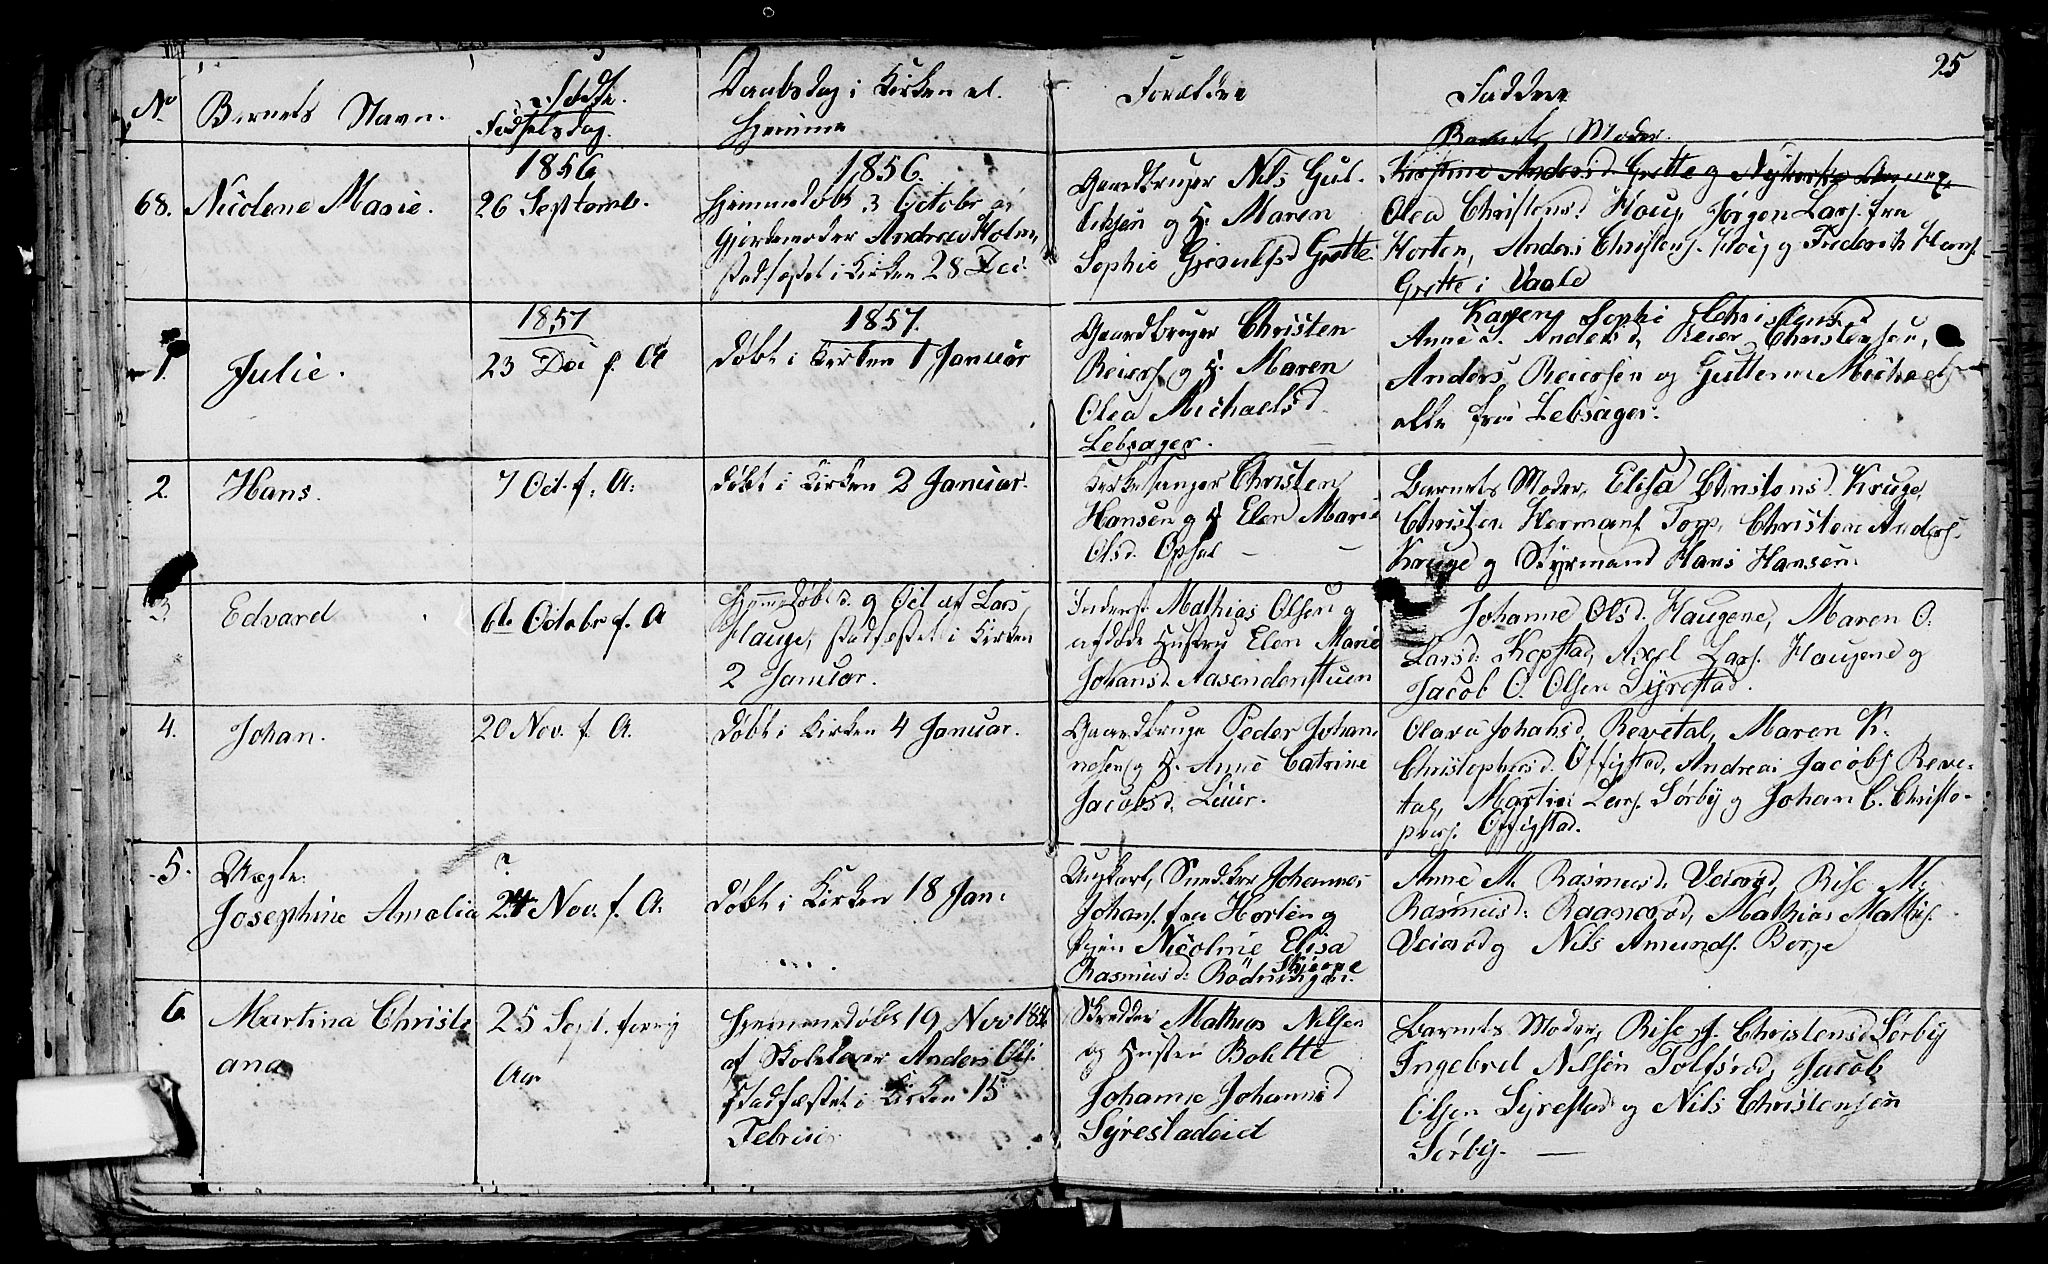 25
No
Barnets Navn.
Fødselsdag.
Daabsdag i Kirken el.
Hjemme
Forældre
Faddere
68.
Nicolene Marie.
1856
26 Septemb.
1856.
Hjemmedøbt 3 Octobr af
Gjordemoder Andrea Holm,
stadfæstet i Kirken 28 Dec:
Gaardbruger Nils Gul-
liksen og H. Maren
Sophie Gjeruldsd Grette.
Barnets Moder.
Kirstine Andersd. Grette og
Olea Christensd. Houg, Jørgen Lars. fra
Horten, Anders Christens. Houg og Frederik Hans.
Grette i Vaale
1.
Julie.
1857
23 Dec f. A
1857.
døbt i Kirken 1 Januar
Gaardbruger Christen
Reiers. og H. Maren
Olea Michaelsd.
Lebsager.
Karen Sophi Christensd
Anne S. Andersd, Reier Christensen,
Anders Reiersen og Gulterm Michaels.
alle fra Lebsager.
2.
Hans.
7 Oct. f. A.
døbt i Kirken 2 Januar.
Kirkesanger Christen
Hansen og H Elen Marie
Olsd. Opsal
Barnets Moder, Elisa Christensd. Kruge,
Christen Hermans. Torp, Christen Anders.
Kruge og Styrmand Hans Hansen.
3.
Edvard
6te Octobr f. A
Hjemmedøbt d. 9 Oct af Lars
Hauge, stadfæstet i Kirken
2 Januar.
Inderst Mathias Olsen og
afdøde Hustru Elen Marie
Johansd. Aasendenstuen
Johanne Olsd. Haugene, Maren O.
Larsd. Kopstad, Axel Lars. Haugene og
Jacob O. Olsen Syrestad.
4.
Johan.
20 Nov. f. A.
døbt i Kirken 4 Januar.
Gaardbruge Peder Johan-
nesen og H. Anne Catrine
Jacobsd. Luur.
Olava Johansd. Revetal, Maren K.
Christophersd. Offigstad, Andreas Jacobs. Reve-
tal, Martin Lars. Sørby og Johan C. Christo-
phers. Offigstad.
5.
Uægte:
Josephine Amalia
?
24 Nov. f. A.
døbt i Kirken 18 Jan:
Ungkarl, Snedker Johannes
Johans. fra Horten og
Pigen Nicoline Elisa
Rasmusd: Rødningen.
Skjerve
Anne M. Rasmusd. Veierød, Rise M.
Rasmusd. Raanerød, Mathias Mathis.
Veierød og Nils Amunds. Borge
6
Martina Christi
ana
25 Sept. forrig
Aar
Hjemmedøbt 19 Nov 1856
af Skolelærer Anders Ols:
stadfæstet i Kirken 15
Februar
Skredder Mathias Nilsen
og Hustru Bolette
Johanne Johannesd
Syrestadeiet
Barnets Moder, Rise J. Christensd Sørby
Ingebret Nilsen Tolfsrød, Jacob
Olsen Syrestad og Nils Christensen
Sørby.